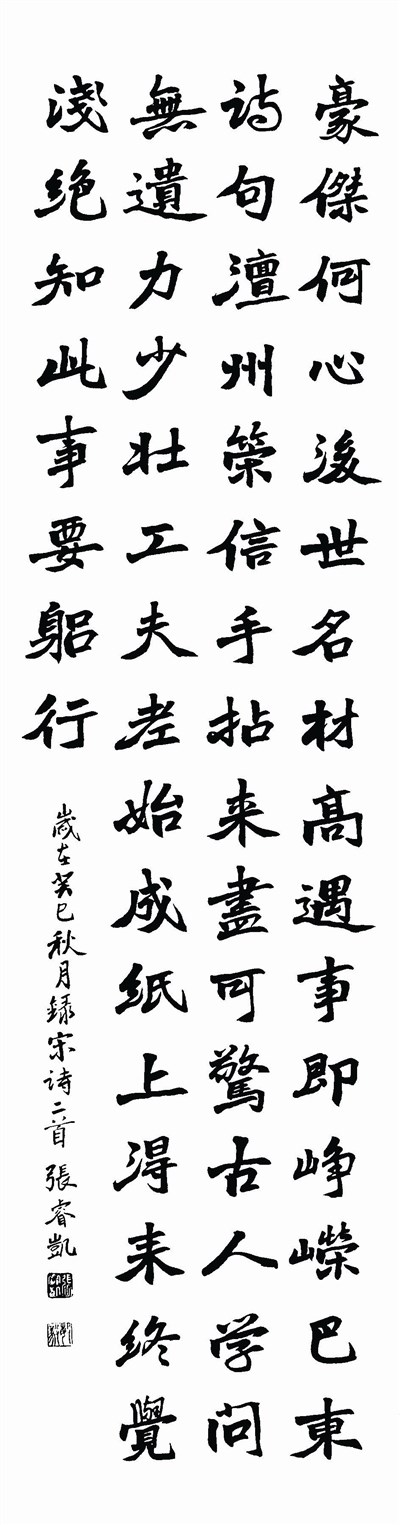 豪傑何心後世名材高遇事即崢嶸巴東
詩句澶州策信手拈来盡可驚古人学問
無遺力少壯工夫老始成紙上得来終覺
淺絕知此事要躬行
歲在癸巳秋月録宋诗二首張睿凱